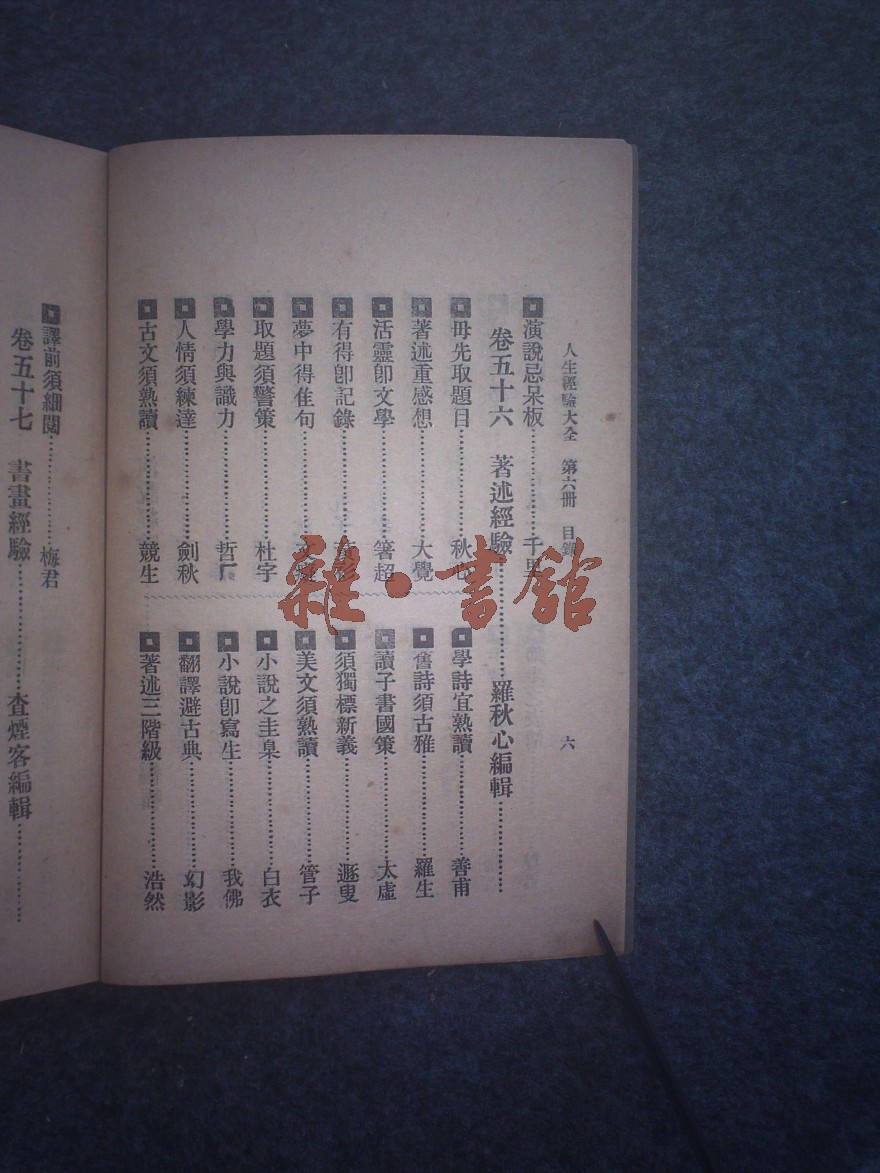 人生經驗大全 第六冊 目錄 六
演說忌呆板……千里
卷五十六 著述經驗……羅秋心編輯……
毋先取題目……秋心
著述重感想……大覺
活靈卽文學……箸超
有得卽記錄……
夢中得佳句……
取題須警策……杜宇
學力與識力……哲厂
人情須練達……劍秋
古文須熟讀……競生
學詩宜熟讀……善甫
舊詩須古雅……羅生
讀子書國策……太虛
須獨標新義……遯叟
美文須熟讀……管子
小說之圭臬……白衣
小說卽寫生……我佛
翻譯避古典……幻影
著述三階級……浩然
譯前須細閱……梅君
卷五十七 書畫經驗……查煙客編輯……
雜·書館